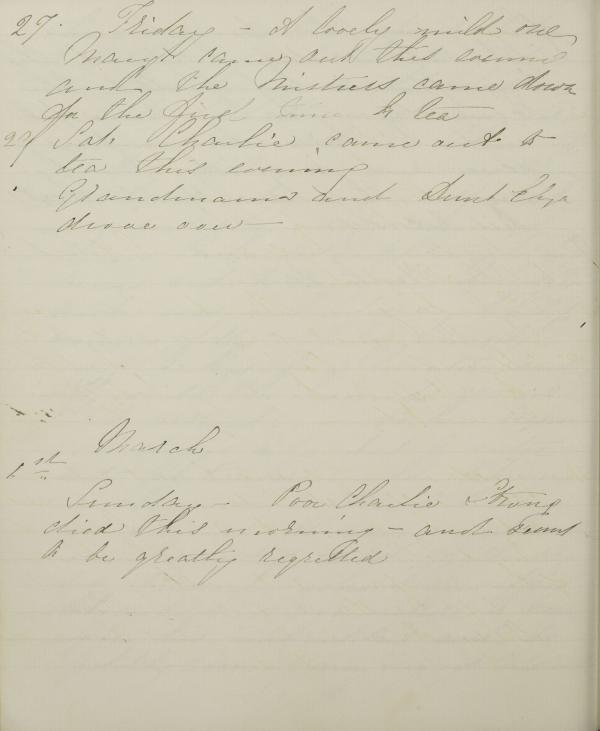 27. Friday - A lovely mild one
Mary came out this evening
and the Mistress came down
for the first time to tea
29 Sat. Charlie came out to
tea this evening
Grandmama and Aunt Eliza
drove over -
March
1st
Sunday - Poor Charlie Strong
died this morning - and seems
to be greatly regretted